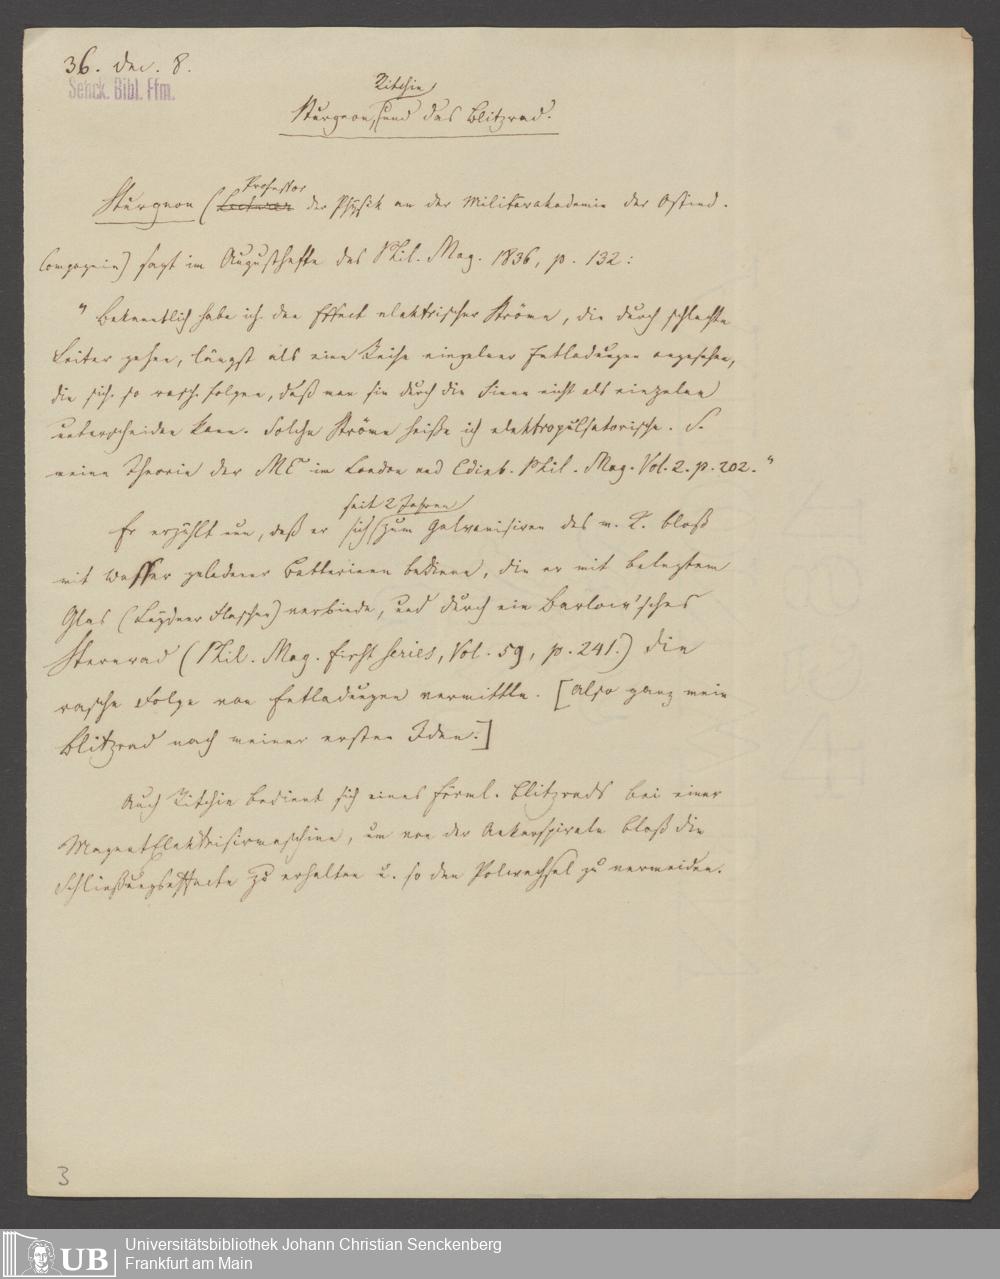 36. Dec. 8.
Senck. Bibl. Ffm.
Ritchie
Sturgeon, und das Blitzrad.
Professor
Sturgeon (Lecturer der Physik an der Militärakademie der Ostind.
Compagnie) sagt im Augusthefte des Phil. Mag. 1836, p. 132:
"Bekanntlich habe ich den Effect elektrischer Ströme, die durch schlechte
Leiter gehen, längst als eine Reihe einzelner Entladungen angesehen,
die sich so rasch folgen, daß man sie durch die Sinne nicht als einzelne
unterscheiden kann. Solche Ströme heiße ich elektropulsatorische. S.
meine Theorie der ME im London and Edinb. Phil. Mag. Vol. 2. p. 202."
seit 2 Jahren
Er erzählt nun, daß er sich zum Galvanisiren des m. K. bloß
mit Wasser geladener Batterieen bediene, die er mit belegtem
Glas (Leydner Flaschen) verbinde, und durch ein Barlow'sches
Sternrad (Phil. Mag. first series, Vol. 59, p. 241.) die
rasche Folge von Entladungen vermittle. [Also ganz mein
Blitzrad nach meiner ersten Idee.]
Auch Ritchie bedient sich eines förml. Blitzrads bei einer
MagnetElektrisirmaschine, um von der Ankerspirale bloß die
Schließungseffecte zu erhalten u. so den Polwechsel zu vermeiden.
3
UB
Universitätsbibliothek Johann Christian Senckenberg
Frankfurt am Main